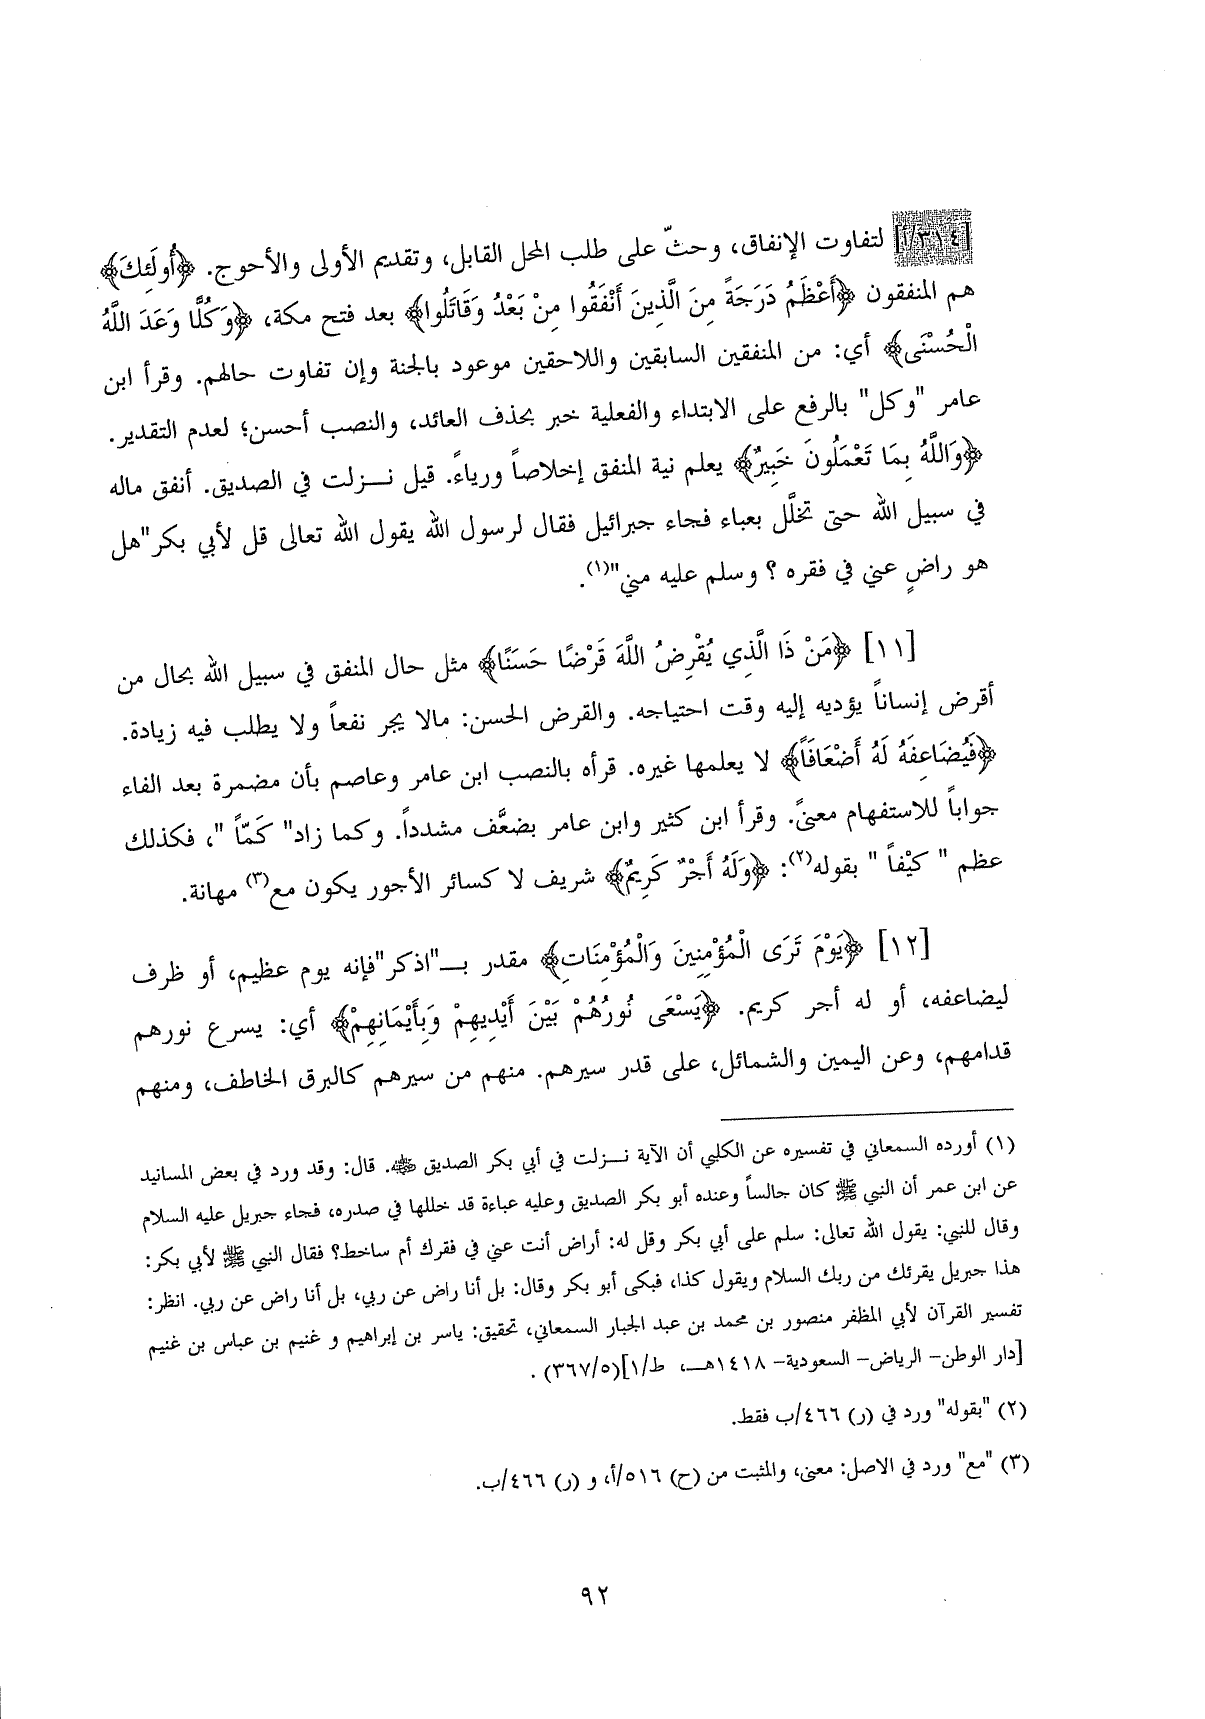 [٣١٤/أ] لتفاوت الإنفاق، وحثّ على طلب المحل القابل، وتقديم الأولى والأحوج. ﴿أُولَئِكَ﴾
هم المنفقون ﴿أَعْظَمُ دَرَجَةً مِنَ الَّذِينَ أَنْفَقُوا مِنْ بَعْدُ وَقَاتَلُوا﴾ بعد فتح مكة، ﴿وَكُلًّا وَعَدَ اللَّهُ
الْحُسْنَى﴾ أي: من المنفقين السابقين واللاحقين موعود بالجنة وإن تفاوت حالهم. وقرأ ابن
عامر "وكل" بالرفع على الابتداء والفعلية خبر بحذف العائد، والنصب أحسن؛ لعدم التقدير.
﴿وَاللَّهُ بِمَا تَعْمَلُونَ خَبِيرٌ﴾ يعلم نية المنفق إخلاصاً ورياءً. قيل نـزلت في الصديق. أنفق ماله
في سبيل الله حتى تخلَّل بعباء فجاء جبرائيل فقال لرسول الله يقول الله تعالى قل لأبي بكر"هل
هو راضٍ عني في فقره ؟ وسلم عليه مني"(١).
[١١] ﴿مَنْ ذَا الَّذِي يُقْرِضُ اللَّهَ قَرْضًا حَسَنًا﴾ مثل حال المنفق في سبيل الله بحال من
أقرض إنساناً يؤديه إليه وقت احتياجه. والقرض الحسن: مالا يجر نفعاً ولا يطلب فيه زيادة.
﴿فَيُضَاعِفَهُ لَهُ أَضْعَافَاً﴾ لا يعلمها غيره. قرأه بالنصب ابن عامر وعاصم بأن مضمرة بعد الفاء
جواباً للاستفهام معنىً. وقرأ ابن كثير وابن عامر بضعَّف مشدداً. وكما زاد" كَمّاً "، فكذلك
عظم " كيْفاً " بقوله(٢): ﴿وَلَهُ أَجْرٌ كَرِيمٌ﴾ شريف لا كسائر الأجور يكون مع(٣) مهانة.
[١٢] ﴿يَوْمَ تَرَى الْمُؤْمِنِينَ وَالْمُؤْمِنَاتِ﴾ مقدر بــ"اذكر"فإنه يوم عظيم، أو ظرف
ليضاعفه، أو له أجر كريم. ﴿يَسْعَى نُورُهُمْ بَيْنَ أَيْدِيهِمْ وَبِأَيْمَانِهِمْ﴾ أي: يسرع نورهم
قدامهم، وعن اليمين والشمائل، على قدر سيرهم. منهم من سيرهم كالبرق الخاطف، ومنهم
(١) أورده السمعاني في تفسيره عن الكلبي أن الآية نـزلت في أبي بكر الصديق ﷺ. قال: وقد ورد في بعض المسانيد
عن ابن عمر أن النبي ﷺ كان جالساً وعنده أبو بكر الصديق وعليه عباءة قد خللها في صدره، فجاء جبريل عليه السلام
وقال للنبي: يقول الله تعالى: سلم على أبي بكر وقل له: أراض أنت عني في فقرك أم ساخط؟ فقال النبي ﷺ لأبي بكر:
هذا جبريل يقرئك من ربك السلام ويقول كذا، فبكى أبو بكر وقال: بل أنا راض عن ربي، بل أنا راض عن ربي. انظر:
تفسير القرآن لأبي المظفر منصور بن محمد بن عبد الجبار السمعاني، تحقيق: ياسر بن إبراهيم و غنيم بن عباس بن غنيم
[دار الوطن- الرياض- السعودية- ١٤١٨هـ، ط/١](٣٦٧/٥) .
(٢) "بقوله" ورد في (ر) ٤٦٦/ب فقط.
(٣) "مع" ورد في الاصل: معنى، والمثبت من (ح) ٥١٦/أ، و (ر) ٤٦٦/ب.
٩٢